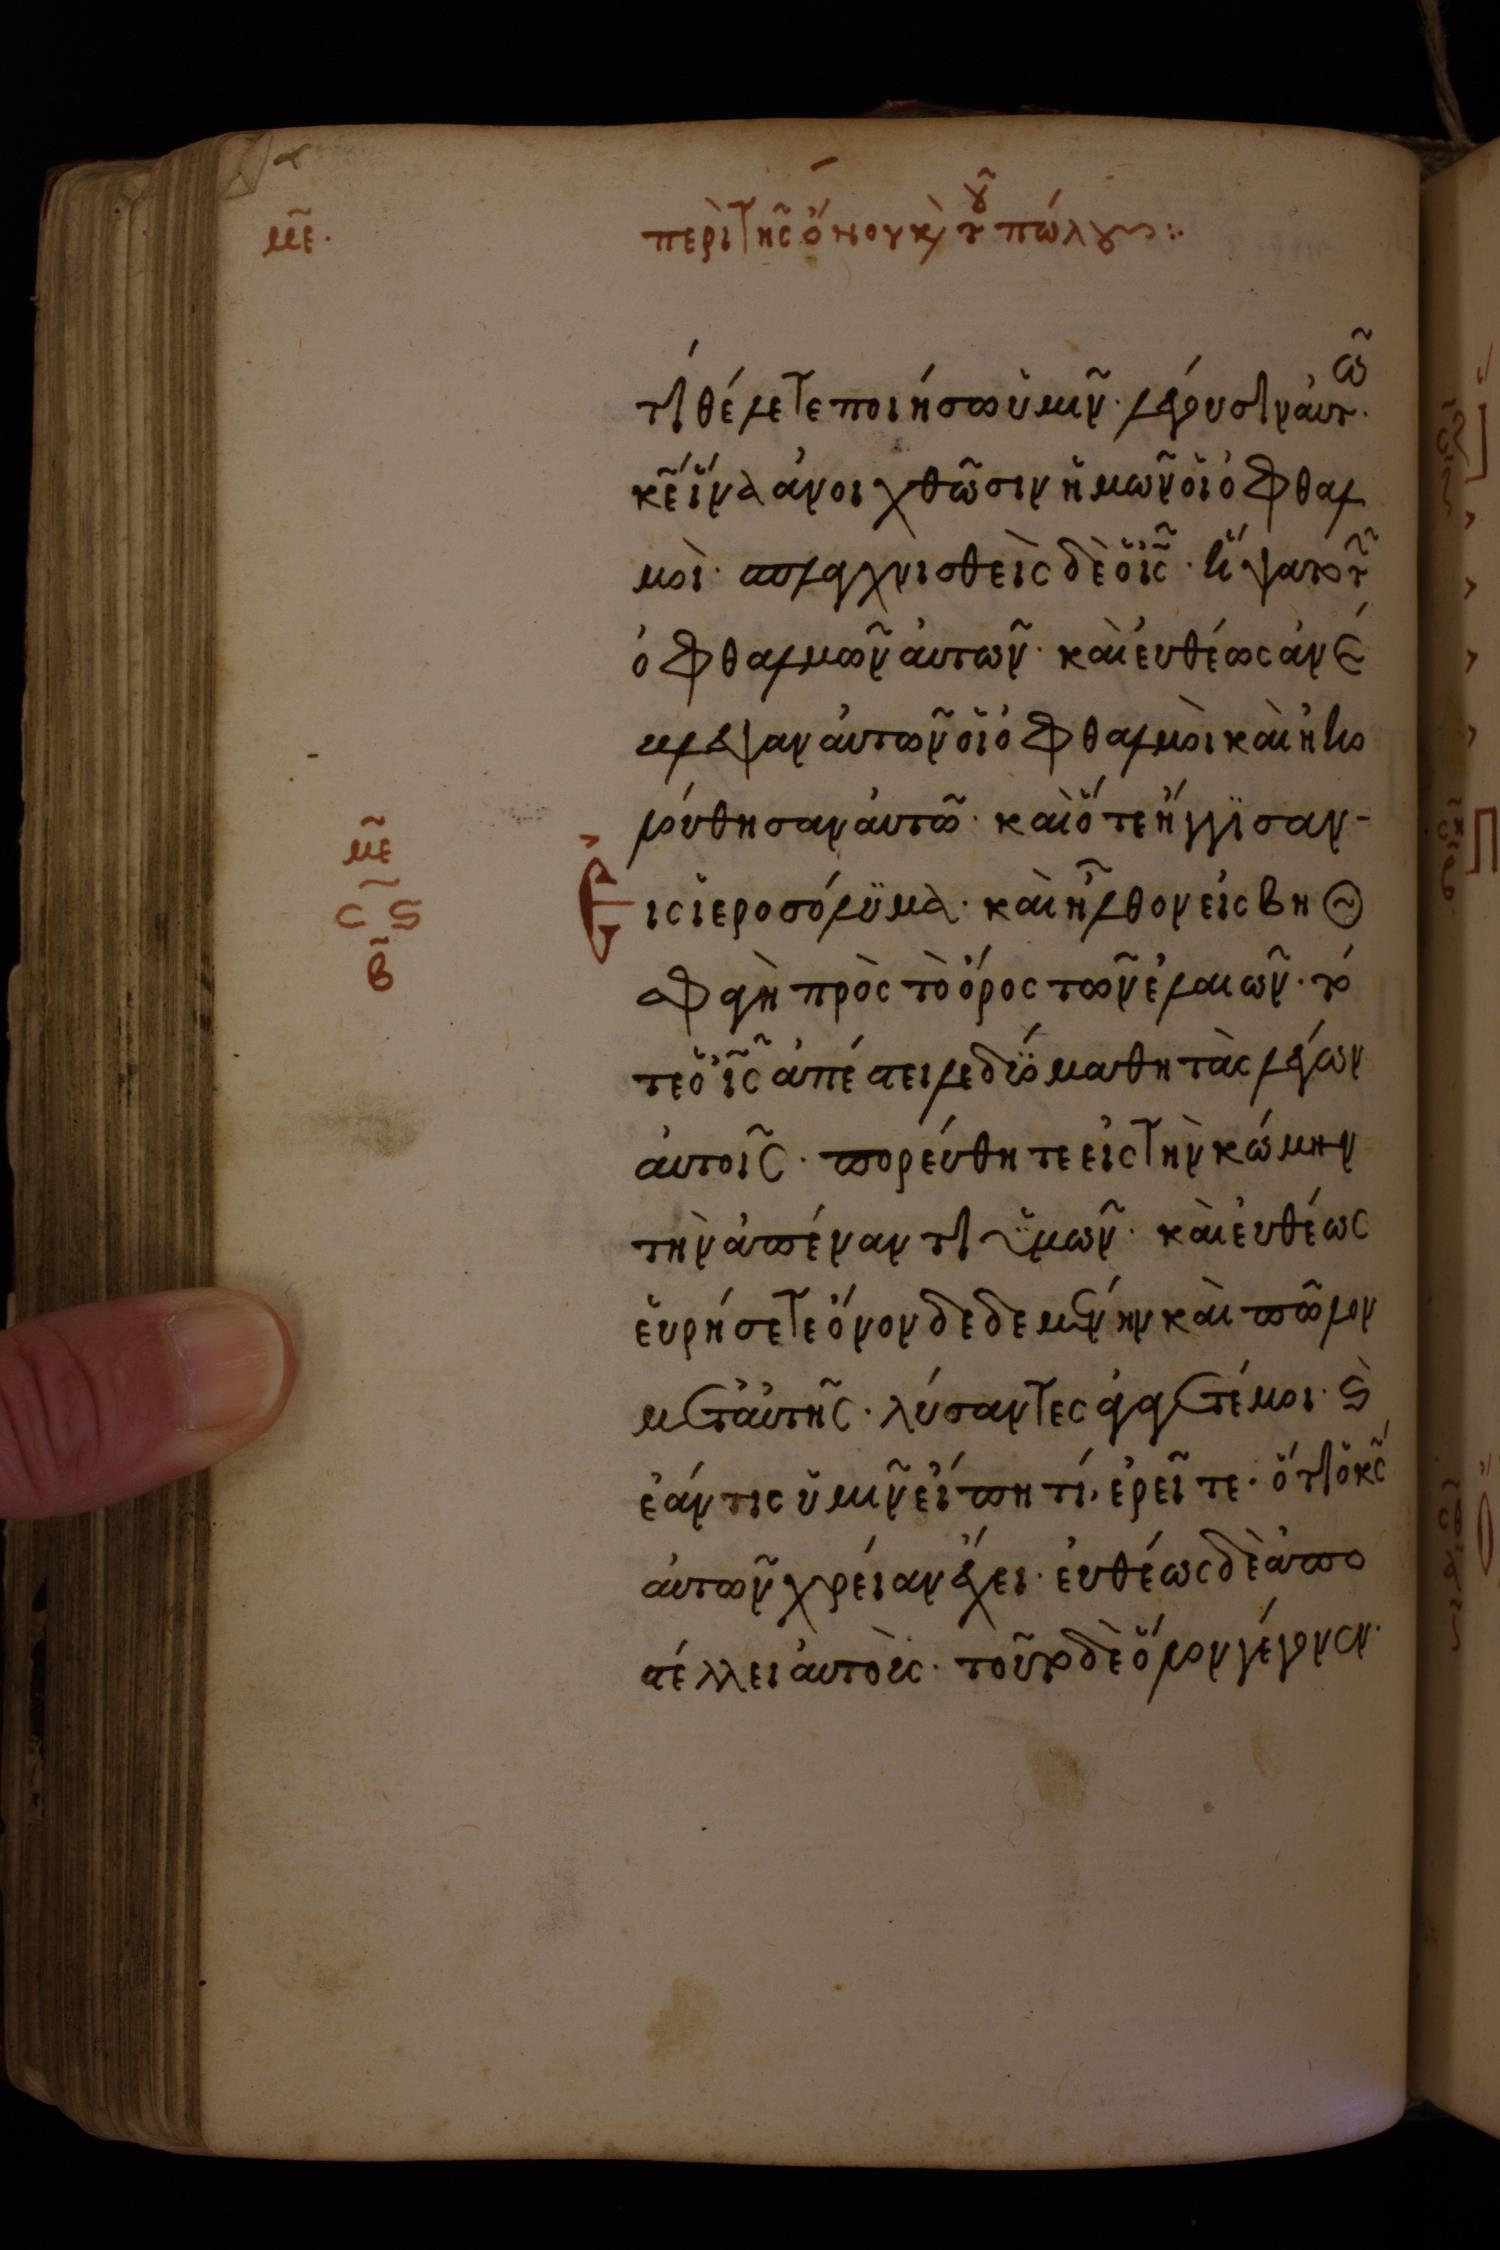 με.
περὶ τῆς ὄνου κὶ τοῦ πώλου:
τί θέλετε ποιήσω ὑμῖν· λέγουσιν αὐτῶ·
κε ἵνα ἀνοιχθῶσιν ἡμῶν οἱ ὀφθαλ
μοί· σπλαγχνισθεὶς δὲ ὁ ις· ἥψατο τῶν
ὀφθαλμῶν αὐτῶν· καὶ εὐθέως ἀνέ
βλεψαν αὐτῶν οἱ ὀφθαλμοὶ καὶ ἠκο
λούθησαν αὐτῶ· καὶ ὅτε ἤγγϊσαν
με
εις ἱεροσόλϋμα· καὶ ἦλθον εἰς βηθ
ς ϛ
β
σφαγὴ πρὸς τὸ ὄρος τῶν ἐλαιῶν· τό
τε ὁ ις ἀπέστειλε δύο μαθητὰς λέγων
αὐτοῖς· πορεύθητε εἰς τὴν κώμην
τὴν ἀπέναντι ὑμῶν· καὶ εὐθέως
εὑρήσετε ὄνον δεδεμένην καὶ πῶλον
μετ' αὐτῆς· λύσαντες ἀγάγετέ μοι· καὶ
ἐάν τις ὑμῖν εἴπη τί, ἐρεῖτε· ὅτι ὁ κς
αὐτῶν χρείαν ἔχει· εὐθέως δὲ ἀπο
στέλλει αὐτοὺς· τοῦτο δὲ ὅλον γέγονεν·